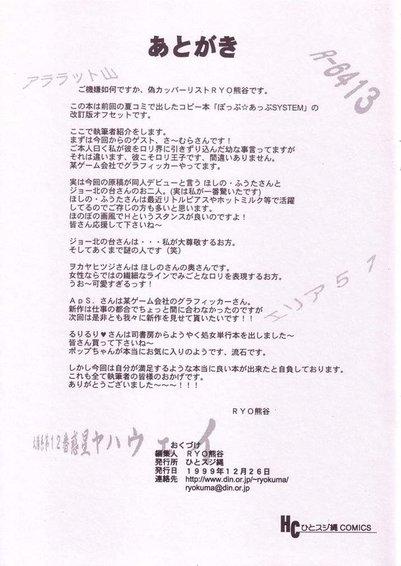 あとがき
アララット山
R-6413
ご機嫌如何ですか、偽カッパーリストRYO熊谷です。
この本は前回の夏コミで出したコピー本「ぽっぷ☆あっぷSYSTEM」の
改訂版オフセットです。
ここで執筆者紹介をします。
まずは今回からのゲスト、さ～むらさんです！
ご本人曰く私が彼をロリ界に引きずり込んだ幼な事言ってますが
それは違います、彼こそロリ王子です、間違いありません。
某ゲーム会社でグラフィッカーやってます。
実は今回の原稿が同人デビューと言う ほしの・ふうたさんと
ジョー北の台さんのお二人。（実は私が一番驚いたです）
ほしの・ふうたさんは最近リトルピアスやホットミルク等で活躍
してるのでご存じの方も多いと思います。
ほのぼの画風でHというスタンスが良いのですよ！
皆さん応援して下さいね～
ジョー北の台さんは・・・私が大尊敬するお方。
そしてあくまで謎の人です（笑）
ヲカヤヒツジさんは ほしのさんの奥さんです。
女性ならではの繊細なラインでみごとなロリを表現するお方。
うお～可愛すぎるっ！
エリア51
ApS．さんは某ゲーム会社のグラフィッカーさん。
新作は仕事の都合でちょっと間に合わなかったのですが
次回は是非とも我々に新作を見せて頂いたいです！！
るりるり♥さんは司書房からようやく処女単行本を出しました～
皆さん買って下さいね～
ポップちゃんが本当にお気に入りのようです、流石です。
しかし今回は自分が満足するような本当に良い本が出来たと自負しております。
これも全て執筆者の皆様のおかげです。
ありがとうございました～～～！！！
RYO熊谷
12番惑星ヤハウェイ
おくづけ
編集人 RYO熊谷
発行所 ひとスジ縄
発行日 1999年12月26日
連絡先 http://www.din.or.jp/~ryokuma/
ryokuma@din.or.jp
HC ひとスジ縄 COMICS